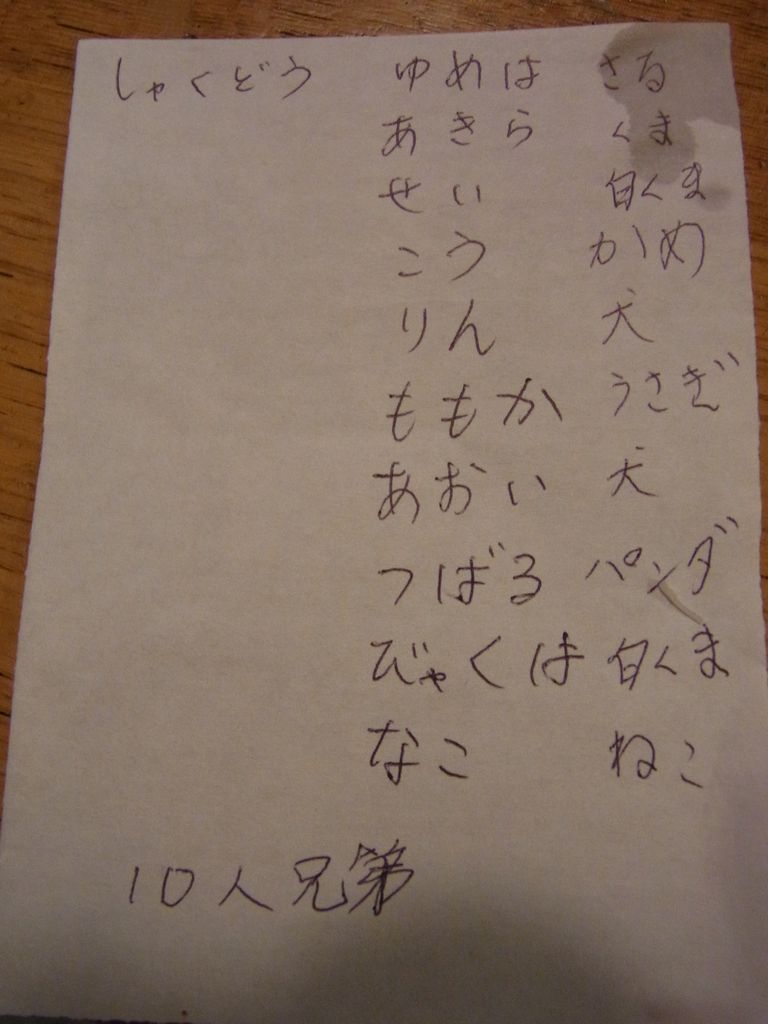 しゃくどう ゆめは さる
あきら くま
せい 白くま
こう かめ
りん 犬
ももか うさぎ
あおい 犬
つばる パンダ
びゃくは 白くま
なこ ねこ
10人兄弟